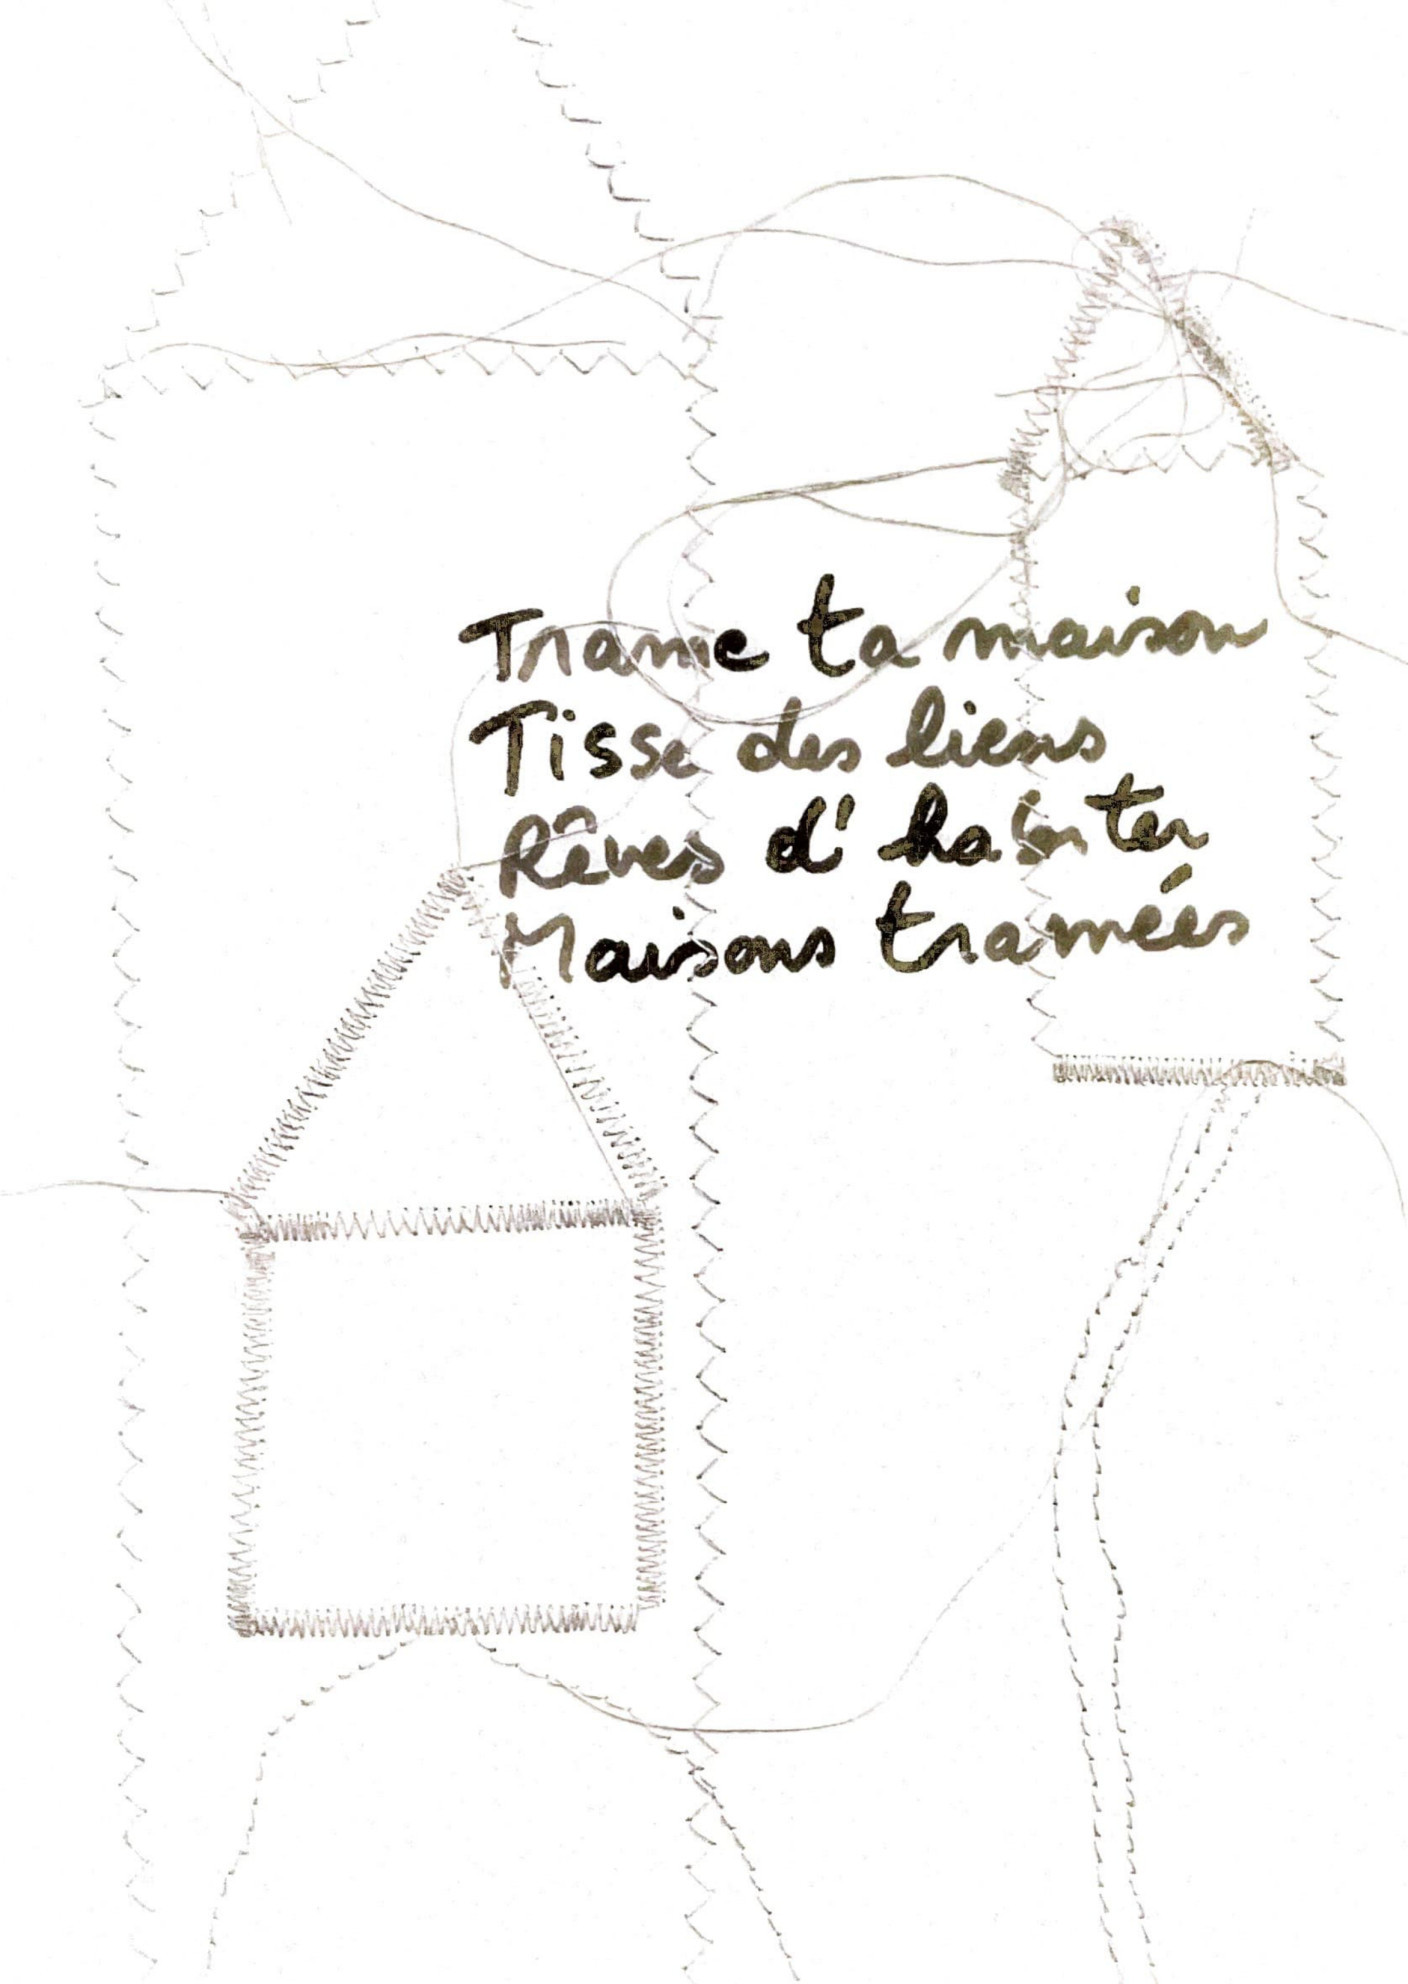 Trame ta maison
Tisse des liens
Rêves d'habiter
Maisons tramées